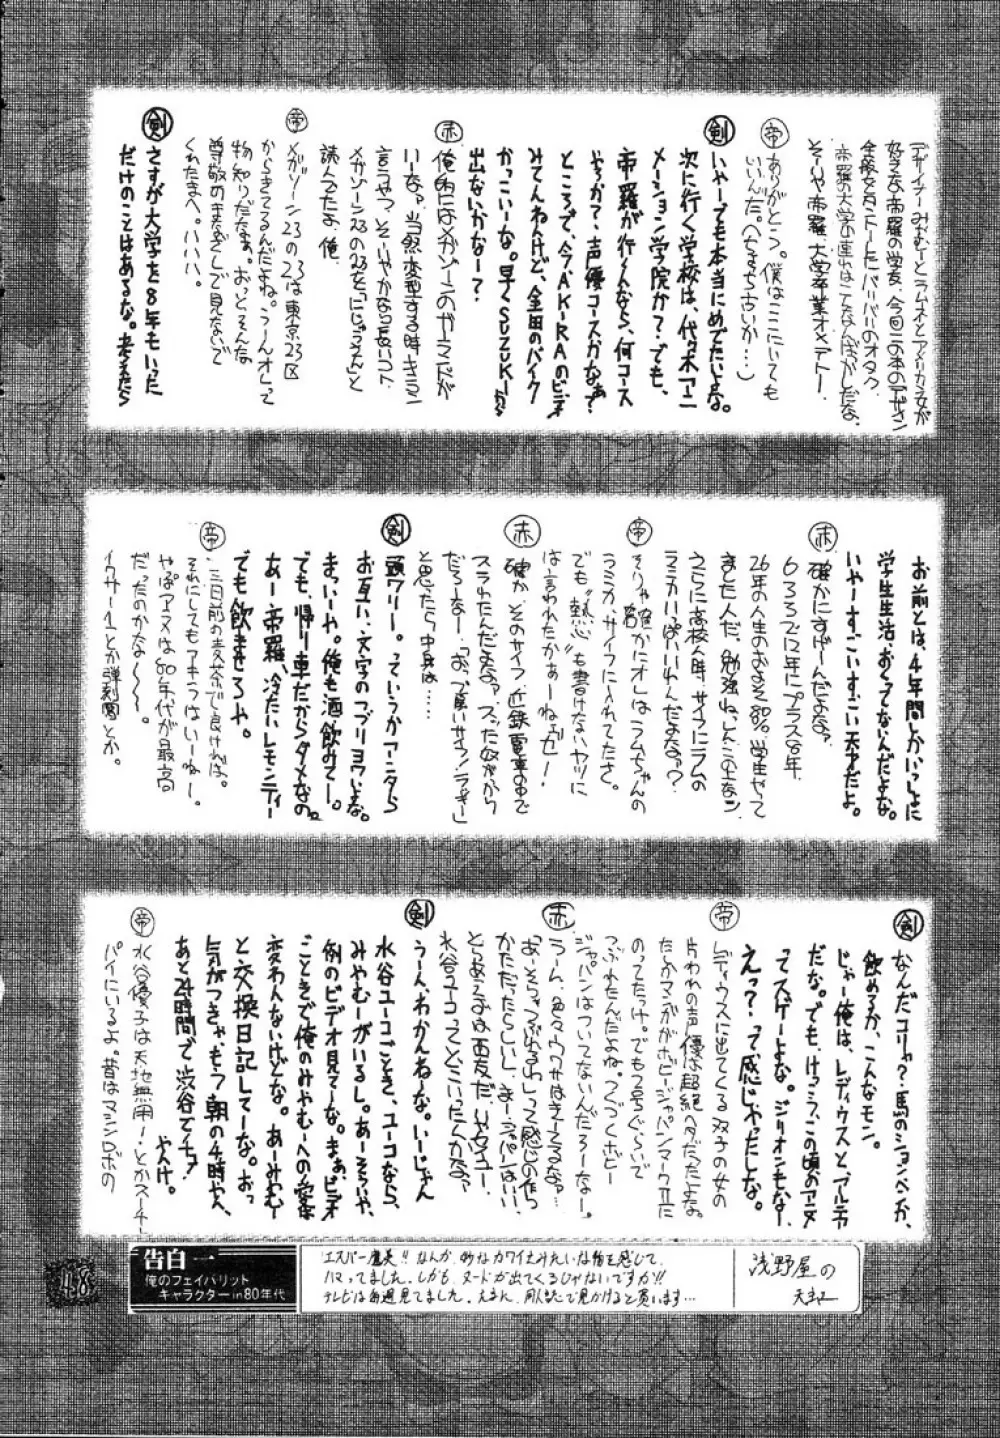 デザイナーみやむーとラムネとアメリカ女が
好きな帝羅の学友、今回この本のデザイン
全般女兄
帝羅の大学の連れはこんなんばかしだな。
そーりゃ帝羅 大学卒業オメデトー。
帝 ありがとう。僕はここにいても
いいんだ。(ちまちち古いか…)
剣 いやーでも本当にめでたいよな。
次に行く学校は、代々木アニ
メーション学院か?でも、
帝羅が行くんなら、何コース
ゃっか?声優コースかなぁ?
ところで、今AKIRAのビデオ
みてんねんけど、金田のバイク
かっこいーな。早くSUZUKIから
出ないかなー?
赤 俺的にはメガゾーンのガーランドが
いーなっ。当然変型する時キュイン
言うやつ。そーいやかなり長いコト
メガゾーン23の23を「にじゅうさん」と
読んでたよ、俺。
帝 メガゾーン23の23は東京23区
からきてるんだよね。うーんオレって
物知りだなぁ。おっとそんな
尊敬のまなざしで見ないで
くれたまへ。ハハハ。
剣 さすが大学を8年もいった
だけのことはあるな。考えたら
お前とは、4年間しかいっしょに
学生生活おくってないんだよな。
いやーすごいすごい天才だよ。
赤 確かにすげーんだよなァ
6 3 3で12年にプラス8年
26年の人生のおよそ80%学生やって
ました人だ。勉強ね、しんこのエなン
さらに高校ん時、サイフにラムの
ラミカいっぱいいれんだよなァ?
帝 そりゃ確かにオレはラムちゃんの
ラミカ、サイフに入れてたさ。
でも〝熱心〟も書けないヤツに
は言われたかぁーねェゼ!
赤 確か そのサイフ近鉄電車の中で
スラれたんだよなァ。スッた奴がから
だろーなー。「おっ、厚いサイフ!ラッキー」
と思ったら中身は……
剣 頭ワリー。っていうかアニタら
お互い、文字のつづりヨワいよな。
まっいーや。俺も酒飲みてー。
でも、帰り車だからダメなの。
あー帝羅、冷たいレモンティー
でも飲ませろや。
帝 三日前の麦茶で良ければ。
それにしてもアキラはいーねー。
やっぱアニメは80年代が最高
だったのかな～～～。
イクサー1とか弾劾凰とか。
剣 なんだコリャ?馬のションベンか、
飲めるか、こんなモン。
じゃー俺は、レディウスと、アルテ
だな。でも、けっこう、この頃のアニメ
ってスゲーよな。ジリオンもなー
えっ?って感じやったしな。
帝 レディウスに出てくる双子の女の
片われの声優は超絶ヘタだったよな。
たしかマンガがホビージャパンマークIIに
のってたっけ。でも7号ぐらいで
つぶれたんだよね。つくづくホビー
ジャパンはついてないんだろーなー。
赤 うーん、色々ウワサはきてるなァ…
「あーそりゃつぶれるわ」って感じの作り
かただったらしいし。まージャパンはいい、
とらあえずは西友だ。いやタイユー、
水谷ユーコってどこいったんかなァ?
剣 うーん、わかんねーな。いーじゃん
水谷ユーコごとき、ユーコなら、
みやむーがいるし。あーそういや、
例のビデオ見てーな。まぁ、ビデオ
ごときで俺のみやむーへの愛は
変わんないけどな。あーみやむー
と交換日記してーな。おっ
気がつきゃもう朝の4時やん、
あと24時間で渋谷でチュッ
やんけ。
帝 水谷優子は天地無用!とかスーチー
パイにいるよ。昔はマシンロボの
告白一
俺のフェイバリット
キャラクターin80年代
エスパー魔美!! なんか、妙なカワイさみたいな物を感じて
ハマってました。しかも、ヌードが出てくるじゃないですか!!
テレビは毎週見てました。
浅野屋の
48